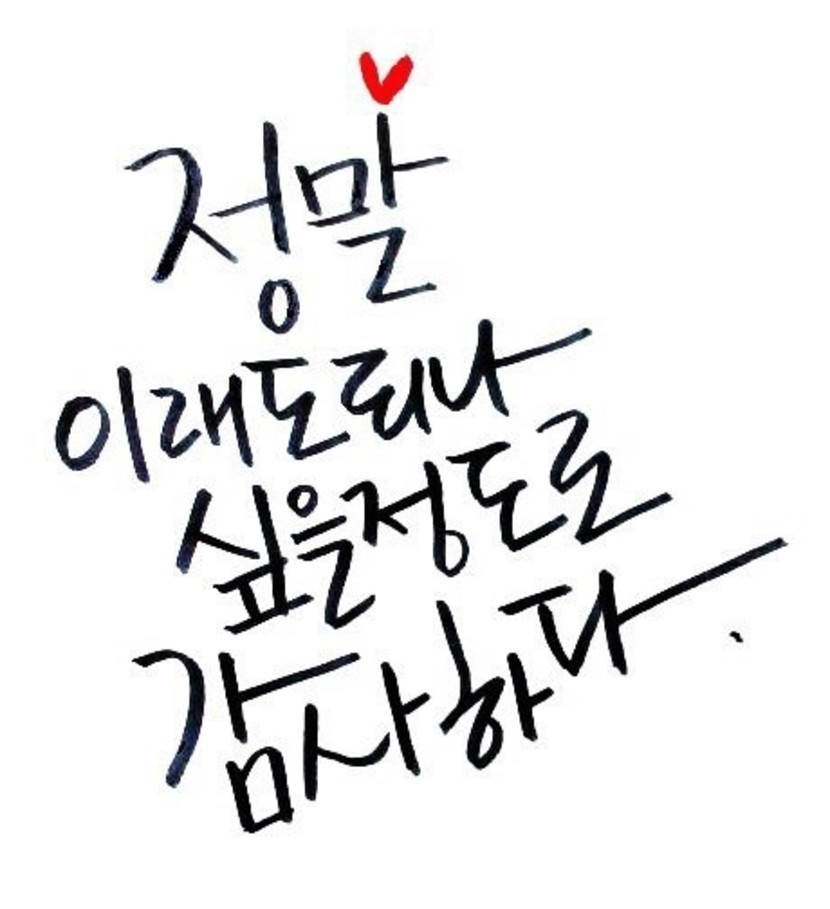 정말
이래도되나
싶을정도로
감사하다.